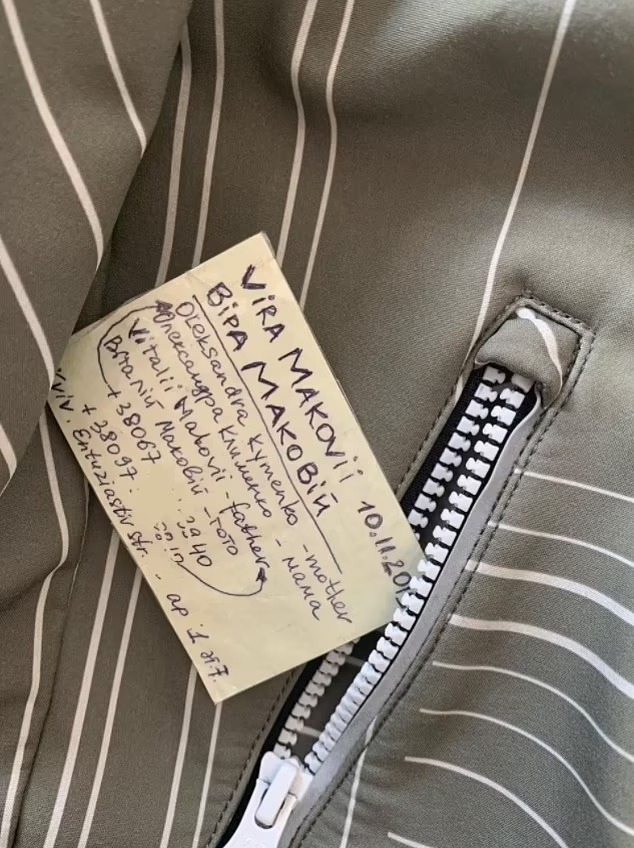 VIRA MAKOVII 10.11.20
ВІРА МАКОВІЙ
Oleksandra Kymenko - mother
Олександра Клименко - мама
Vitalii Makovii - father
Віталій Маковій - тото
+38067 2940
+38097
Kyiv, Entuziastiv str. - ap.